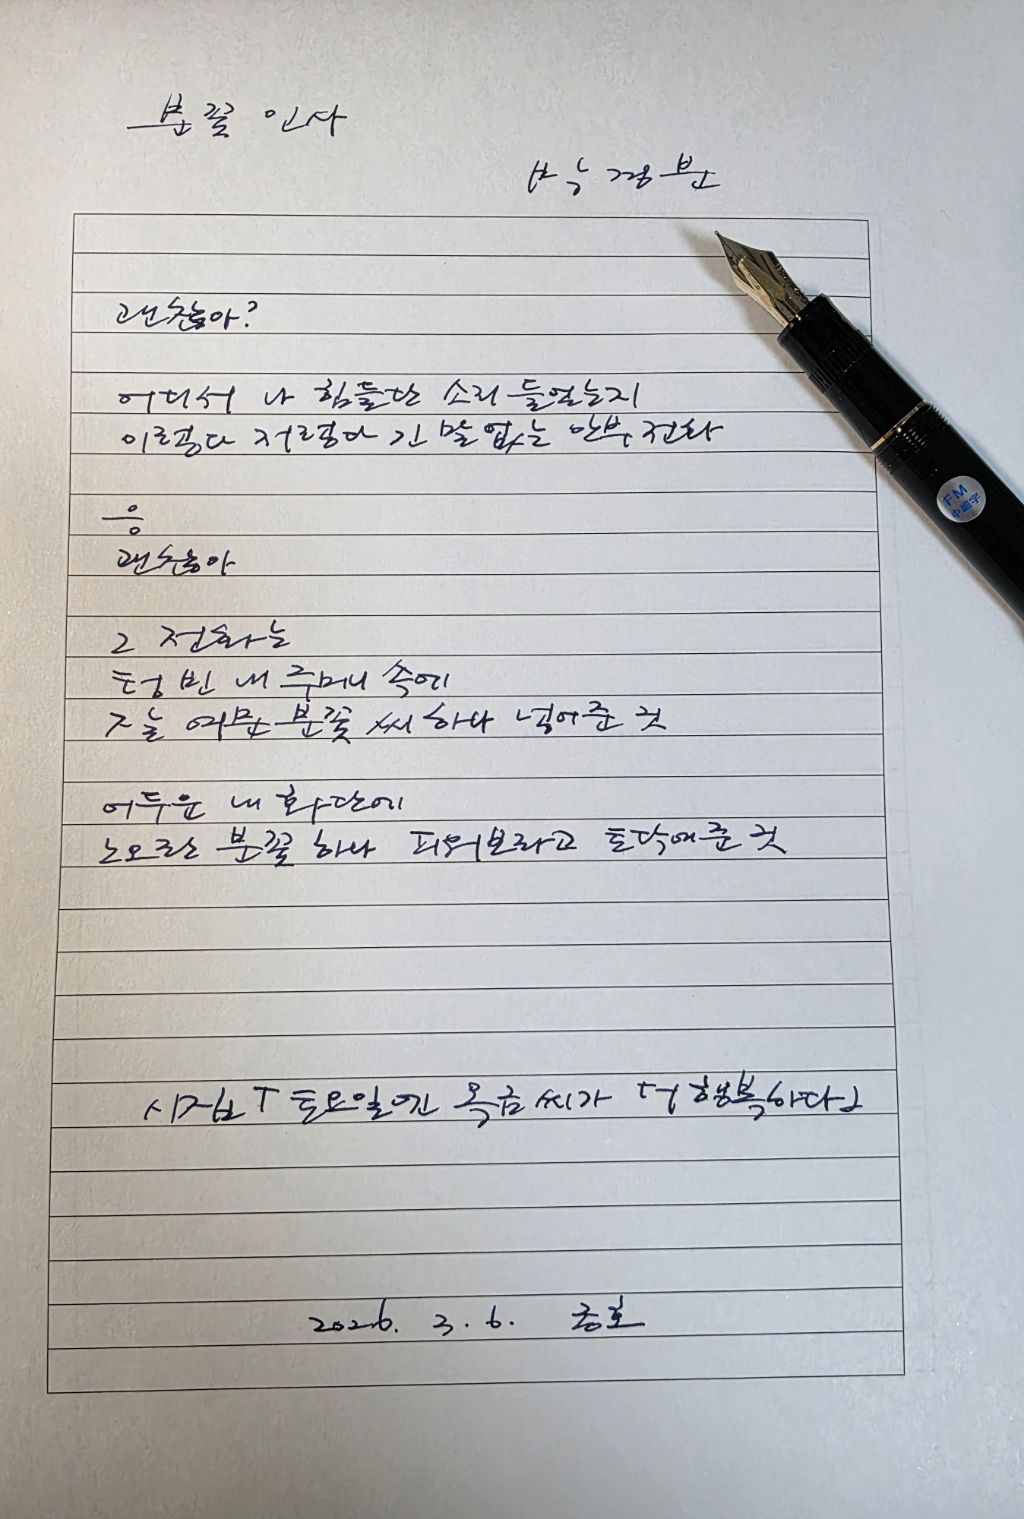 분꽃 인사
박경분
괜찮아?
어디서 나 힘들단 소리 들었는지
이렇다 저렇다 긴 말 없는 안부 전화
응
괜찮아
그 전화는
텅 빈 내 주머니 속에
잘 여문 분꽃 씨 하나 넣어준 것
어두운 내 화단에
노오란 분꽃 하나 피워보라고 토닥여준 것
시집 「토요일엔 목금 씨가 더 행복하다」
2026. 3. 6. 종호
FM
中細字